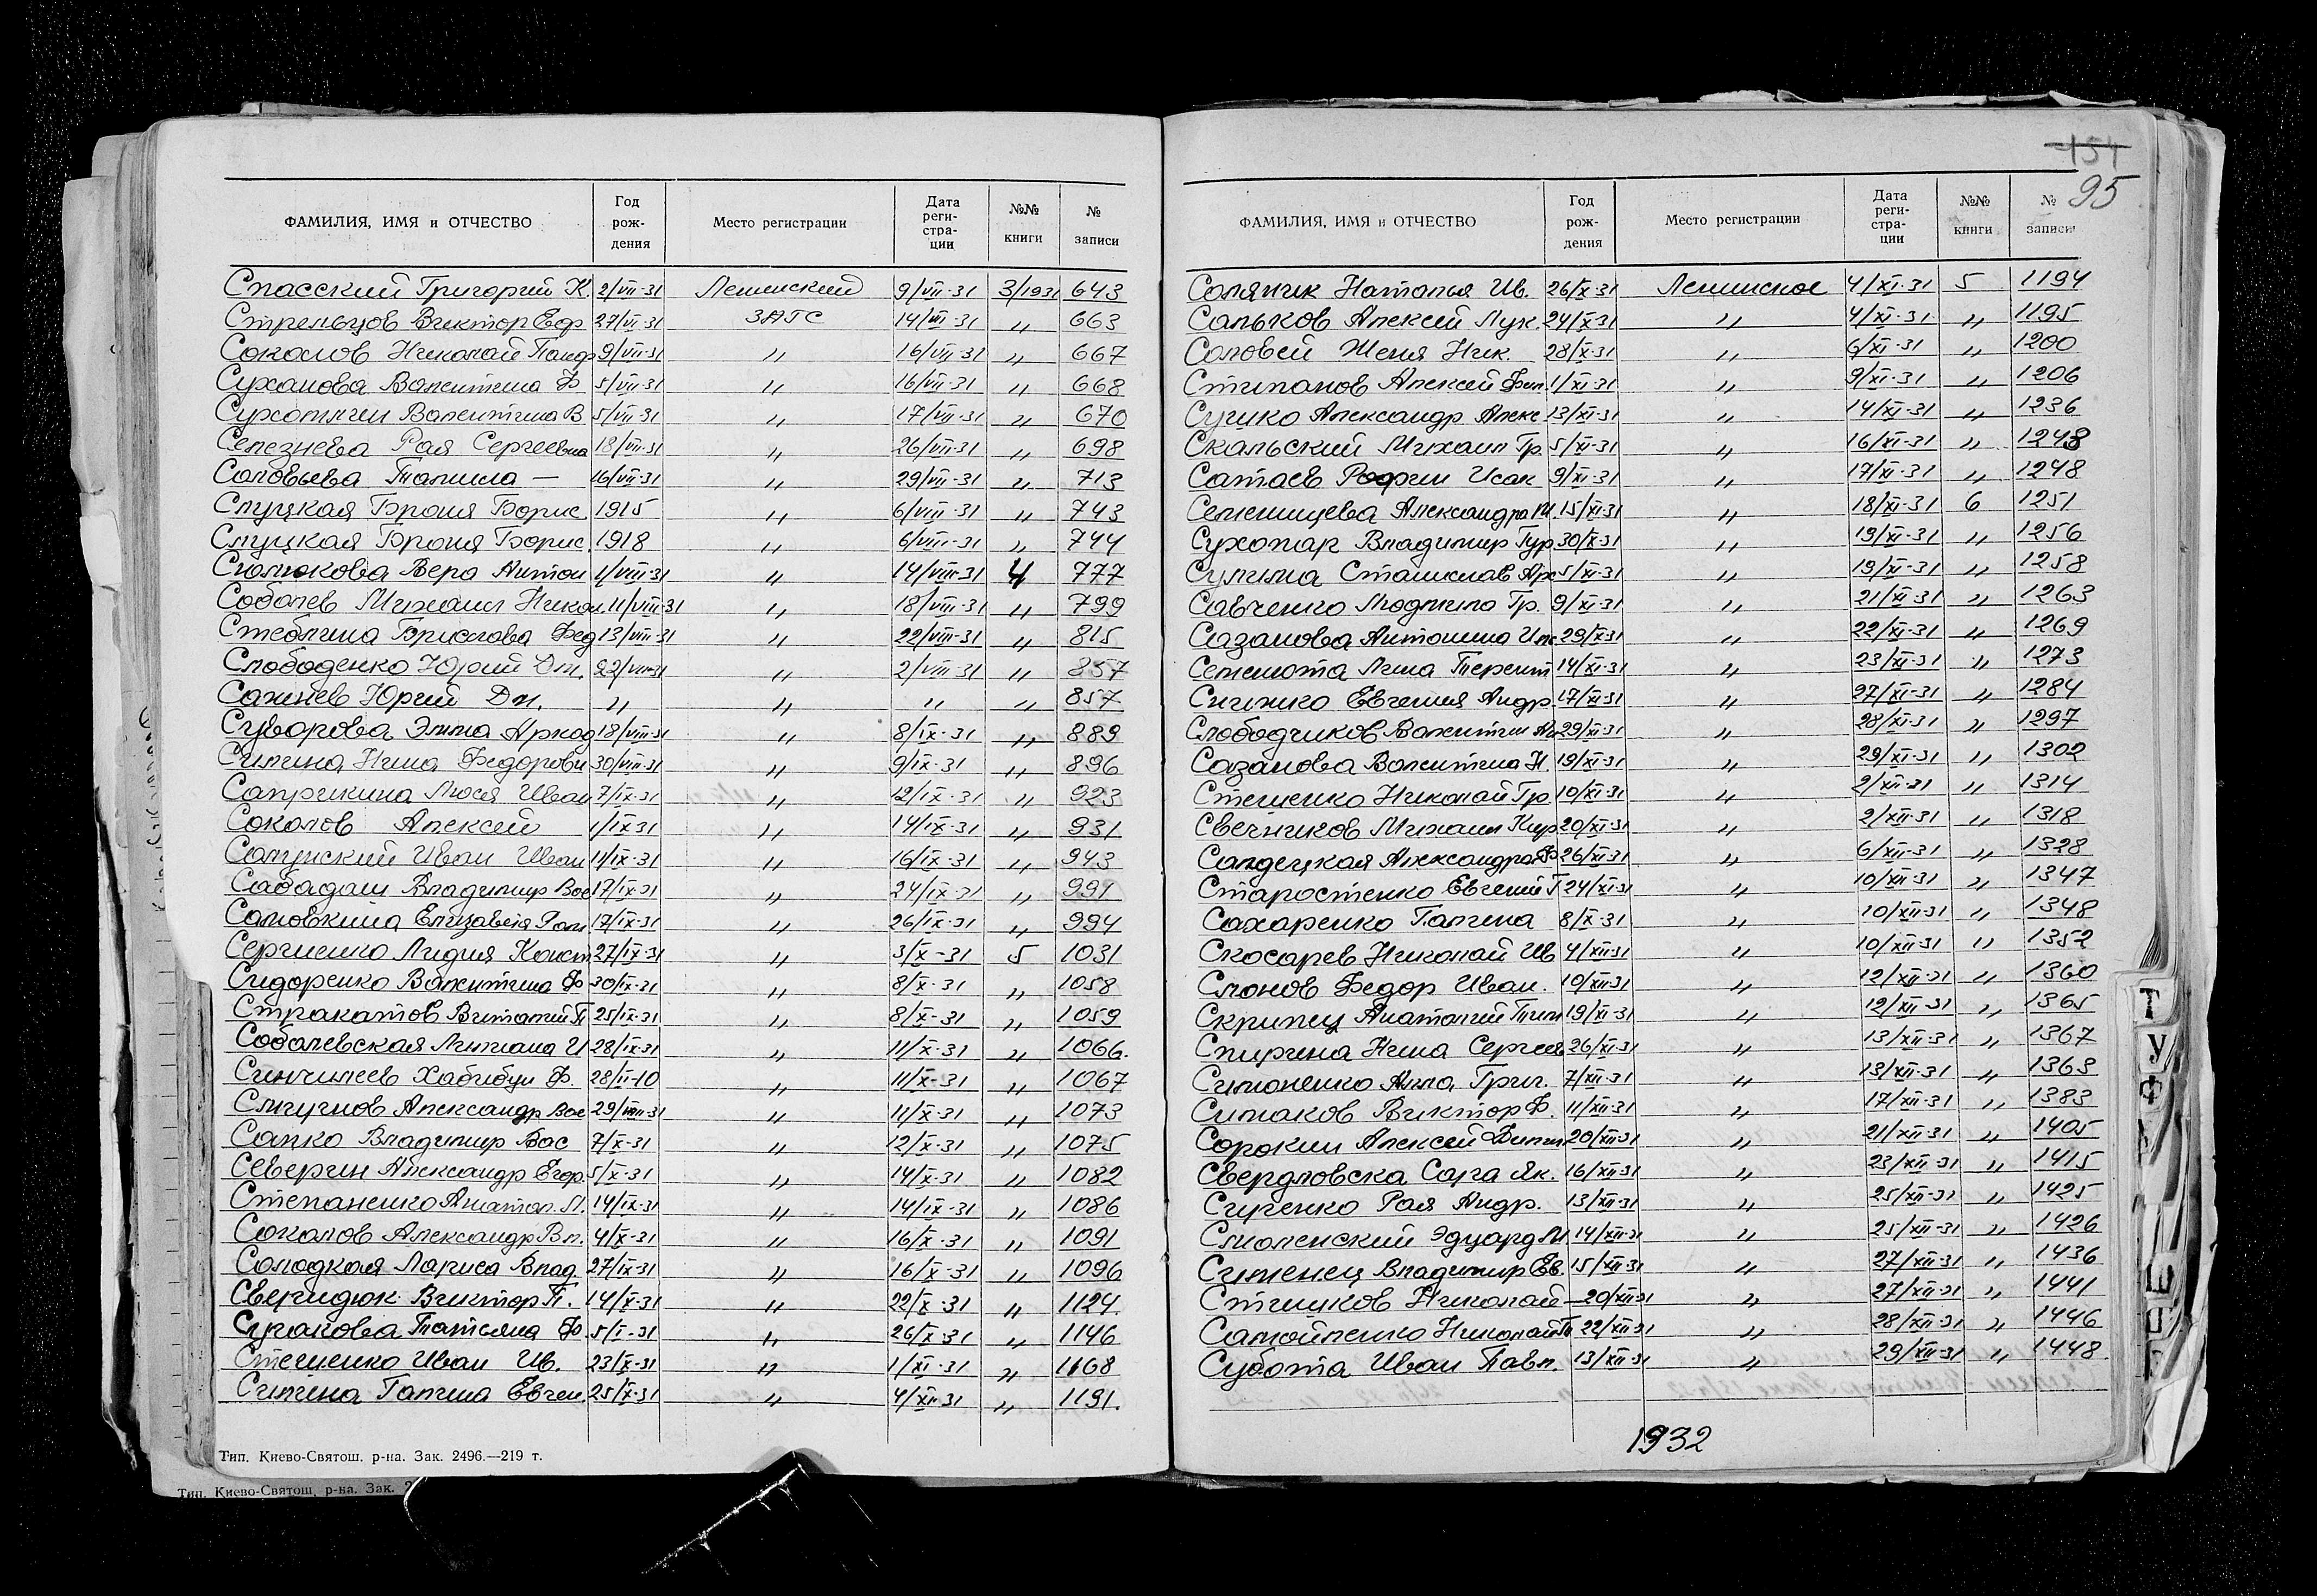 154
95
ФАМИЛИЯ, ИМЯ и ОТЧЕСТВО Год рож-дения Место регистрации Дата реги-стра-ции №№ книги № записи
Спасский Григорий К. 2/VII-31 Ленинский 9/VII-31 3/1931 643
Стрельцов Виктор Еф. 27/VI-31 ЗАГС 14/VII-31 " 663
Соколов Николай Панф 9/VII-31 " 16/VII-31 " 667
Суханова Валентина Ф 5/VII-31 " 16/VII-31 " 668
Сухотин Валентина В 5/VII-31 " 17/VII-31 " 670
Селезнева Рая Сергеевна 18/VII-31 " 26/VII-31 " 698
Соловьева Тамила — 16/VII-31 " 29/VII-31 " 713
Слуцкая Броня Борис. 1915 " 6/VIII-31 " 743
Слуцкая Броня Борис. 1918 " 6/VIII-31 " 744
Вера Антон 1/VIII-31 " 14/VIII-31 4 777
Соболев Михаил Никол. 11/VIII-31 " 18/VIII-31 " 799
Стеблина Брислава Фед 13/VIII-31 " 22/VIII-31 " 815
Слободенко Юрий Дм. 22/VIII-31 " 2/VIII-31 " 857
Сажнев Юрий Дм. " " " " 857
Суворова Элла Аркад 18/VIII-31 " 8/IX-31 " 889
Силина Нина Федоровн 30/VIII-31 " 9/IX-31 " 896
Сапрыкина Люся Иван 7/IX-31 " 12/IX-31 " 923
Соколов Алексей 1/IX-31 " 14/IX-31 " 931
Иван Иван 11/IX-31 " 16/IX-31 " 943
Сабадаш Владимир Вас 17/IX-31 " 24/IX-31 " 991
Соловкина Елизавета 17/IX-31 " 26/IX-31 " 994
Сергиенко Лидия Конст 27/IX-31 " 3/X-31 5 1031
Сидоренко Валентина Ф 30/IX-31 " 8/X-31 " 1058
Стракатов Виталий П 25/IX-31 " 8/X-31 " 1059
Соболевская Лилиана И 28/IX-31 " 11/X-31 " 1066.
Синчилеев Хабибул Ф. 28/II-10 " 11/X-31 " 1067
Александр Вас 29/VIII-31 " 11/X-31 " 1073
Сапко Владимир Вас 7/X-31 " 12/X-31 " 1075
Северин Александр Егор. 5/X-31 " 14/X-31 " 1082
Степаненко Анатол. Л. 14/IX-31 " 14/IX-31 " 1086
Соколов Александр Вл. 4/X-31 " 16/X-31 " 1091
Солодкая Лариса Влад. 27/IX-31 " 16/X-31 " 1096
Свердюк Виктор П. 14/X-31 " 22/X-31 " 1124.
Сучакова Татьяна Ф. 5/X-31 " 26/X-31 " 1146
Стеценко Иван Ив. 23/X-31 " 1/XI-31 " 1168
Силина Галина Евген. 25/X-31 " 4/XI-31 " 1191.
Тип. Киево-Святош. р-на. Зак. 2496.—219 т.
Тип. Киево-Святош. р-на. Зак. 2
ФАМИЛИЯ, ИМЯ и ОТЧЕСТВО Год рож-дения Место регистрации Дата реги-стра-ции №№ книги № записи
Соляник Наталья Ив. 26/X-31 Ленинское 4/XI-31 5 1194
Сальков Алексей Лук. 24/X-31 " 4/XI-31 " 1195
Соловей Женя Ник. 28/X-31 " 6/XI-31 " 1200
Степанов Алексей Фил. 1/XI-31 " 9/XI-31 " 1206
Сушко Александр Алекс 13/XI-31 " 14/XI-31 " 1236
Скальский Михаил Гр. 5/XI-31 " 16/XI-31 " 1243
Сатаев Исак 9/XI-31 " 17/XI-31 " 1248
Семенищева Александра М. 15/XI-31 " 18/XI-31 6 1251
Сухопар Владимир Гур 30/X-31 " 19/XI-31 " 1256
Сулима Станислав Арс 5/XI-31 " 19/XI-31 " 1258
Савченко Людмила Гр. 9/XI-31 " 21/XI-31 " 1263
Сазанова Антонина Ил. 29/X-31 " 22/XI-31 " 1269
Семениота Лина Терент 14/XI-31 " 23/XI-31 " 1273
Евгения Андр. 17/XI-31 " 27/XI-31 " 1284
Слободчиков Валентин Ан 29/XI-31 " 28/XI-31 " 1297
Сазанова Валентина Н. 19/XI-31 " 29/XI-31 " 1302
Стешенко Николай Гр. 10/XI-31 " 2/XII-31 " 1314
Свечников Михаил Кир 20/XI-31 " 2/XII-31 " 1318
Сандецкая Александра Ф 26/XI-31 " 6/XII-31 " 1328
Старостенко Евгений Г 24/XI-31 " 10/XII-31 " 1347
Сахаренко Галина 8/X-31 " 10/XII-31 " 1348
Скосарев Николай Ив 4/XII-31 " 10/XII-31 " 1352
Слонов Федор Иван. 10/XII-31 " 12/XII-31 " 1360
Скрипец Анатолий Тим 19/XI-31 " 12/XII-31 " 1365
Спирина Нина Сергеев 26/XI-31 " 13/XII-31 " 1367
Симоненко Алла Григ. 7/XII-31 " 13/XII-31 " 1363
Симаков Виктор Ф. 11/XII-31 " 17/XII-31 " 1383
Сорокин Алексей Филип 20/XII-31 " 21/XII-31 " 1405
Свердловска Сара Як. 16/XII-31 " 23/XII-31 " 1415
Рая Андр. 13/XII-31 " 25/XII-31 " 1425
Смоленский Эдуард М 14/XII-31 " 25/XII-31 " 1426
Сименец Владимир Ев. 15/XII-31 " 27/XII-31 " 1436
Николай — 20/XII-31 " 27/XII-31 " 1441
Самойленко Николай П 22/XII-31 " 28/XII-31 " 1446
Субота Иван Павл. 13/XII-31 " 29/XII-31 " 1448.
1932
Т
У
Ф
Ш